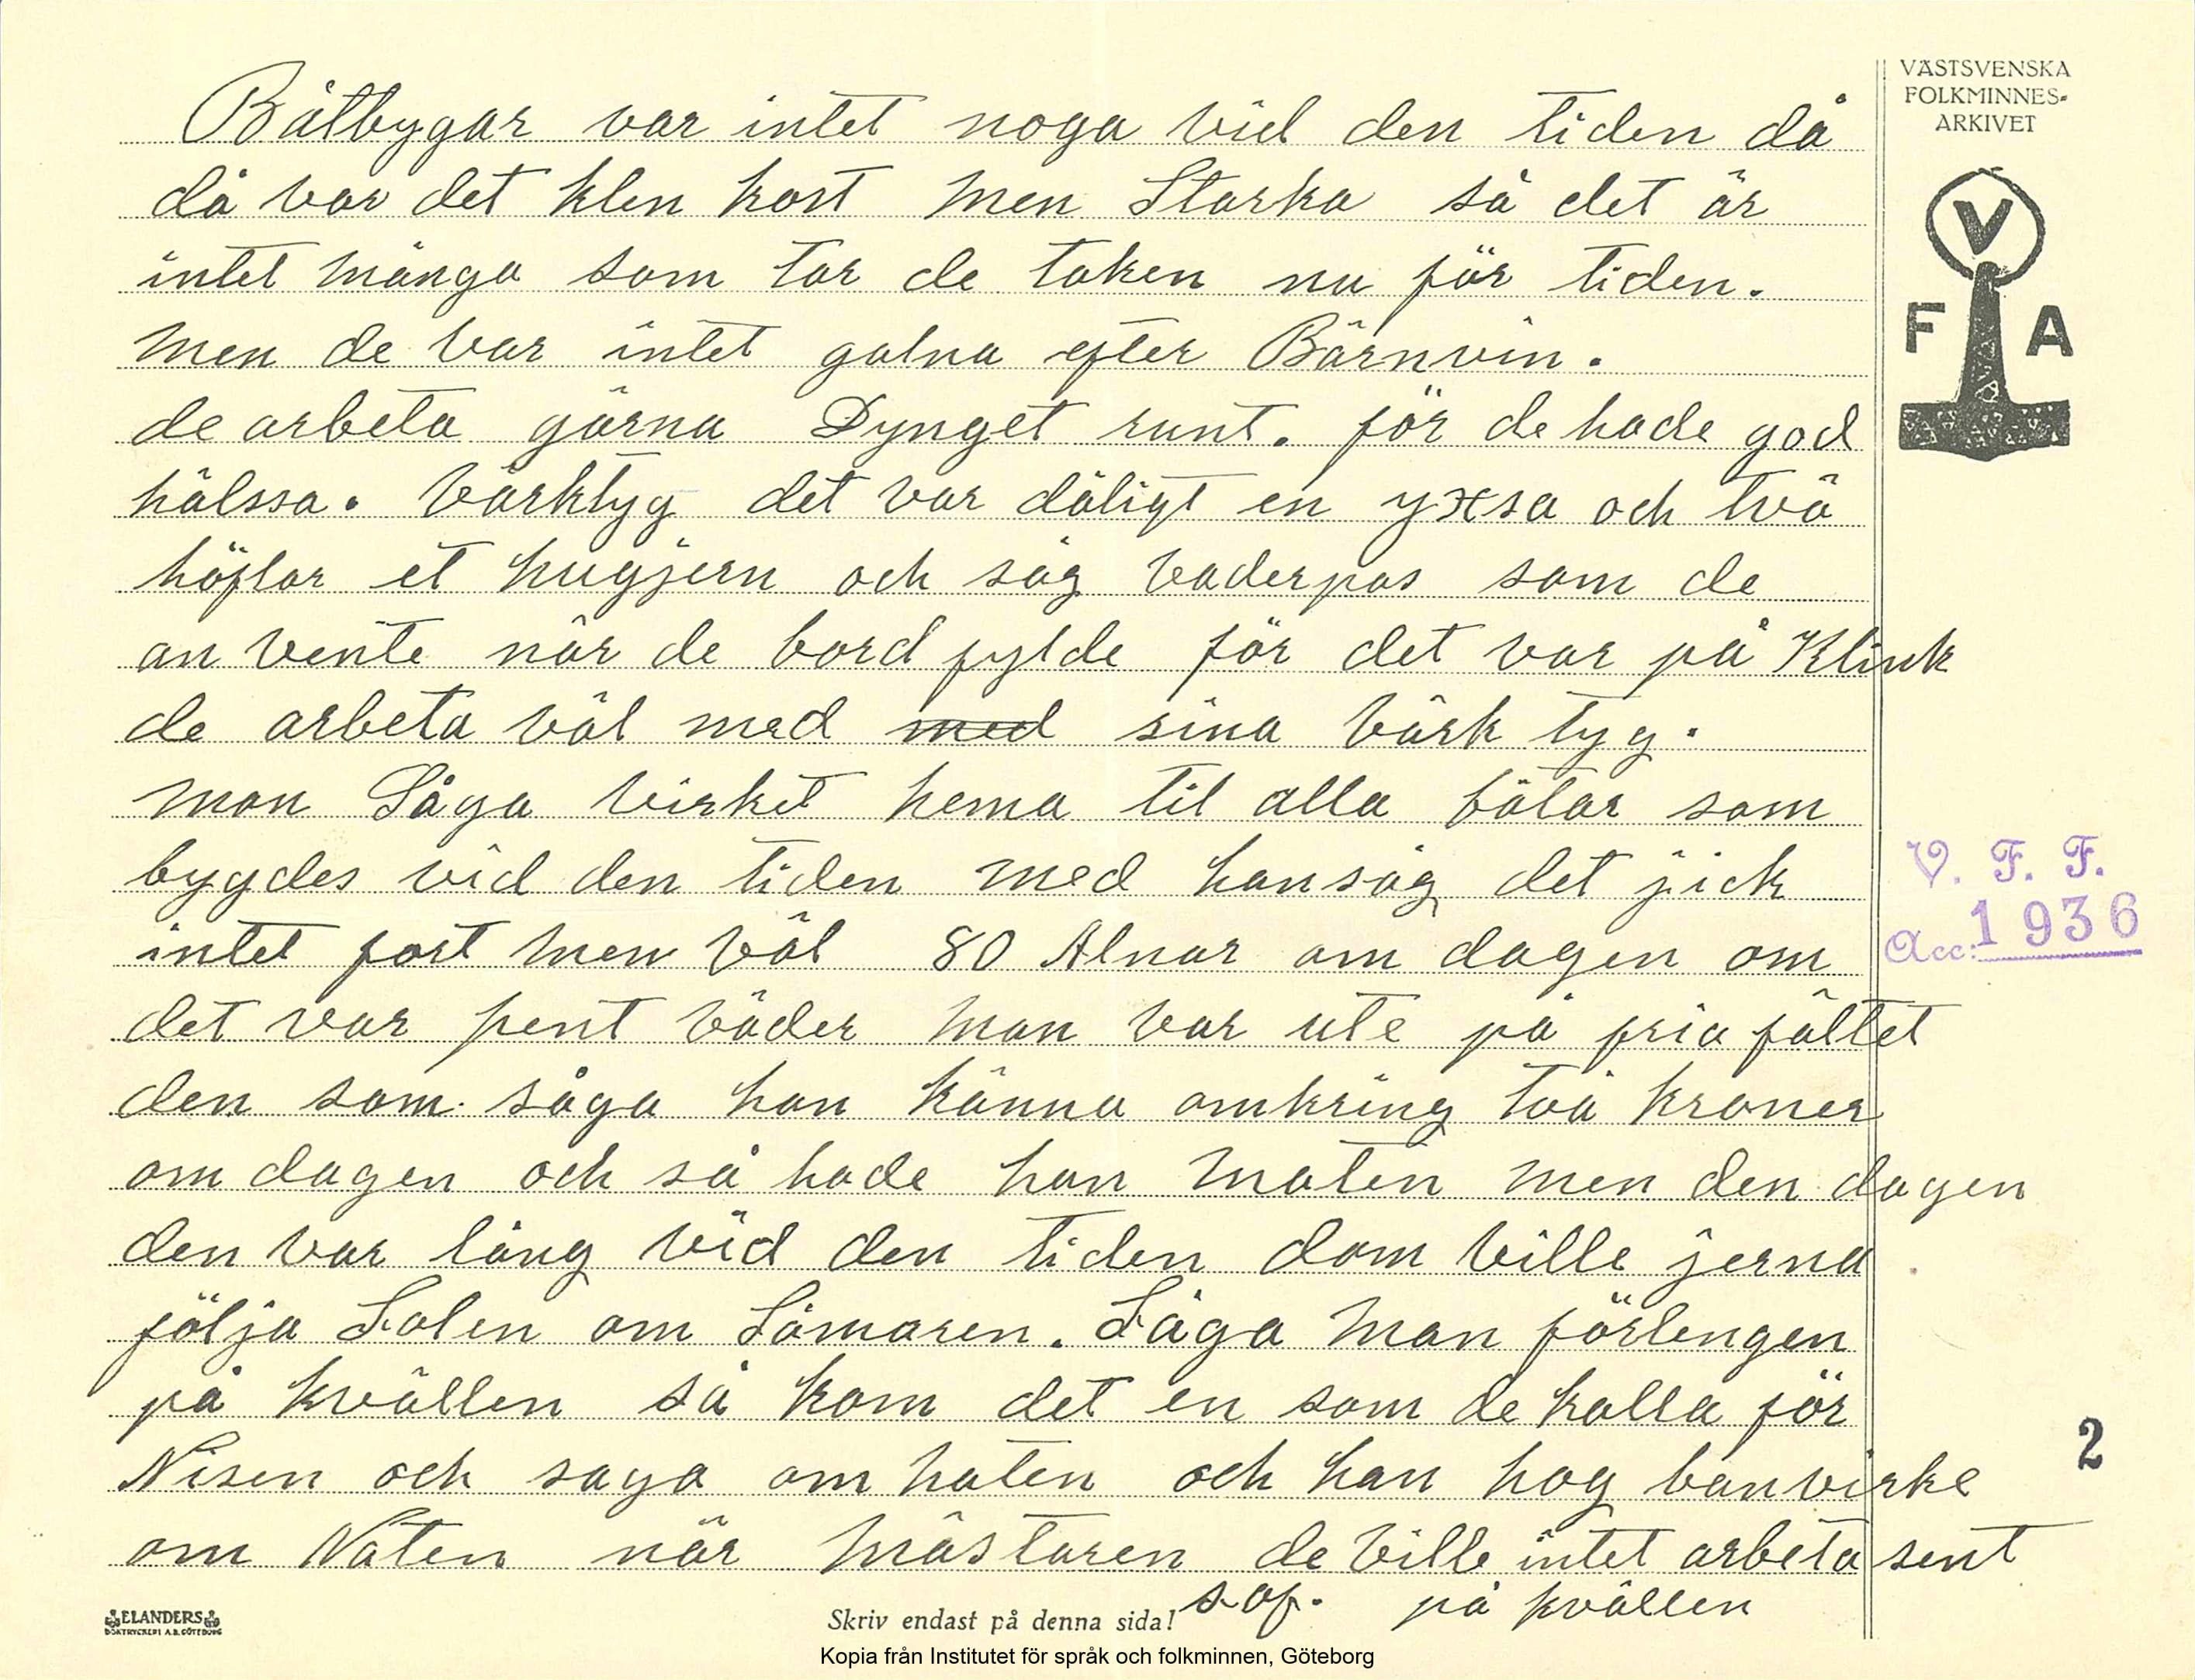 Båtbygar var intet noga vid den tiden då
då var det klen kost men Starka så det är
intet många som tar de taken nu för tiden.
men de var intet galna efter Bärnvin.
de arbeta gärna Dynget runt. för de hade god
hälssa. Värktyg det var dåligt en yxsa och två
höflar et hugjern och såg vaderpas som de
an vente när de bord fylde för det var på Klink
de arbeta väl med med sina värk tyg.
man Såga virket hema til alla båtar som
bygdes vid den tiden med hansåg det jick
intet fort men väl 80 Alnar om dagen om
det var pent väder man var ute på fria fältet
den som såga han känna omkring två kroner
om dagen och så hade han maten men den dagen
den var lång vid den tiden dom ville jerna
följa Solen om Såmaren. Såga man förlengen
på kvällen så kom det en som de kalla för
Nisen och saga om naten och han hog banvirke
om Naten när mästaren sof. de ville intet arbeta sent
på kvällen
VÄSTSVENSKA
FOLKMINNES-
ARKIVET
V
F A
V. F. F.
Acc: 1936
2
ELANDERS
BOKTRYCKERI A.B. GÖTEBORG
Skriv endast på denna sida!
Kopia från Institutet för språk och folkminnen, Göteborg